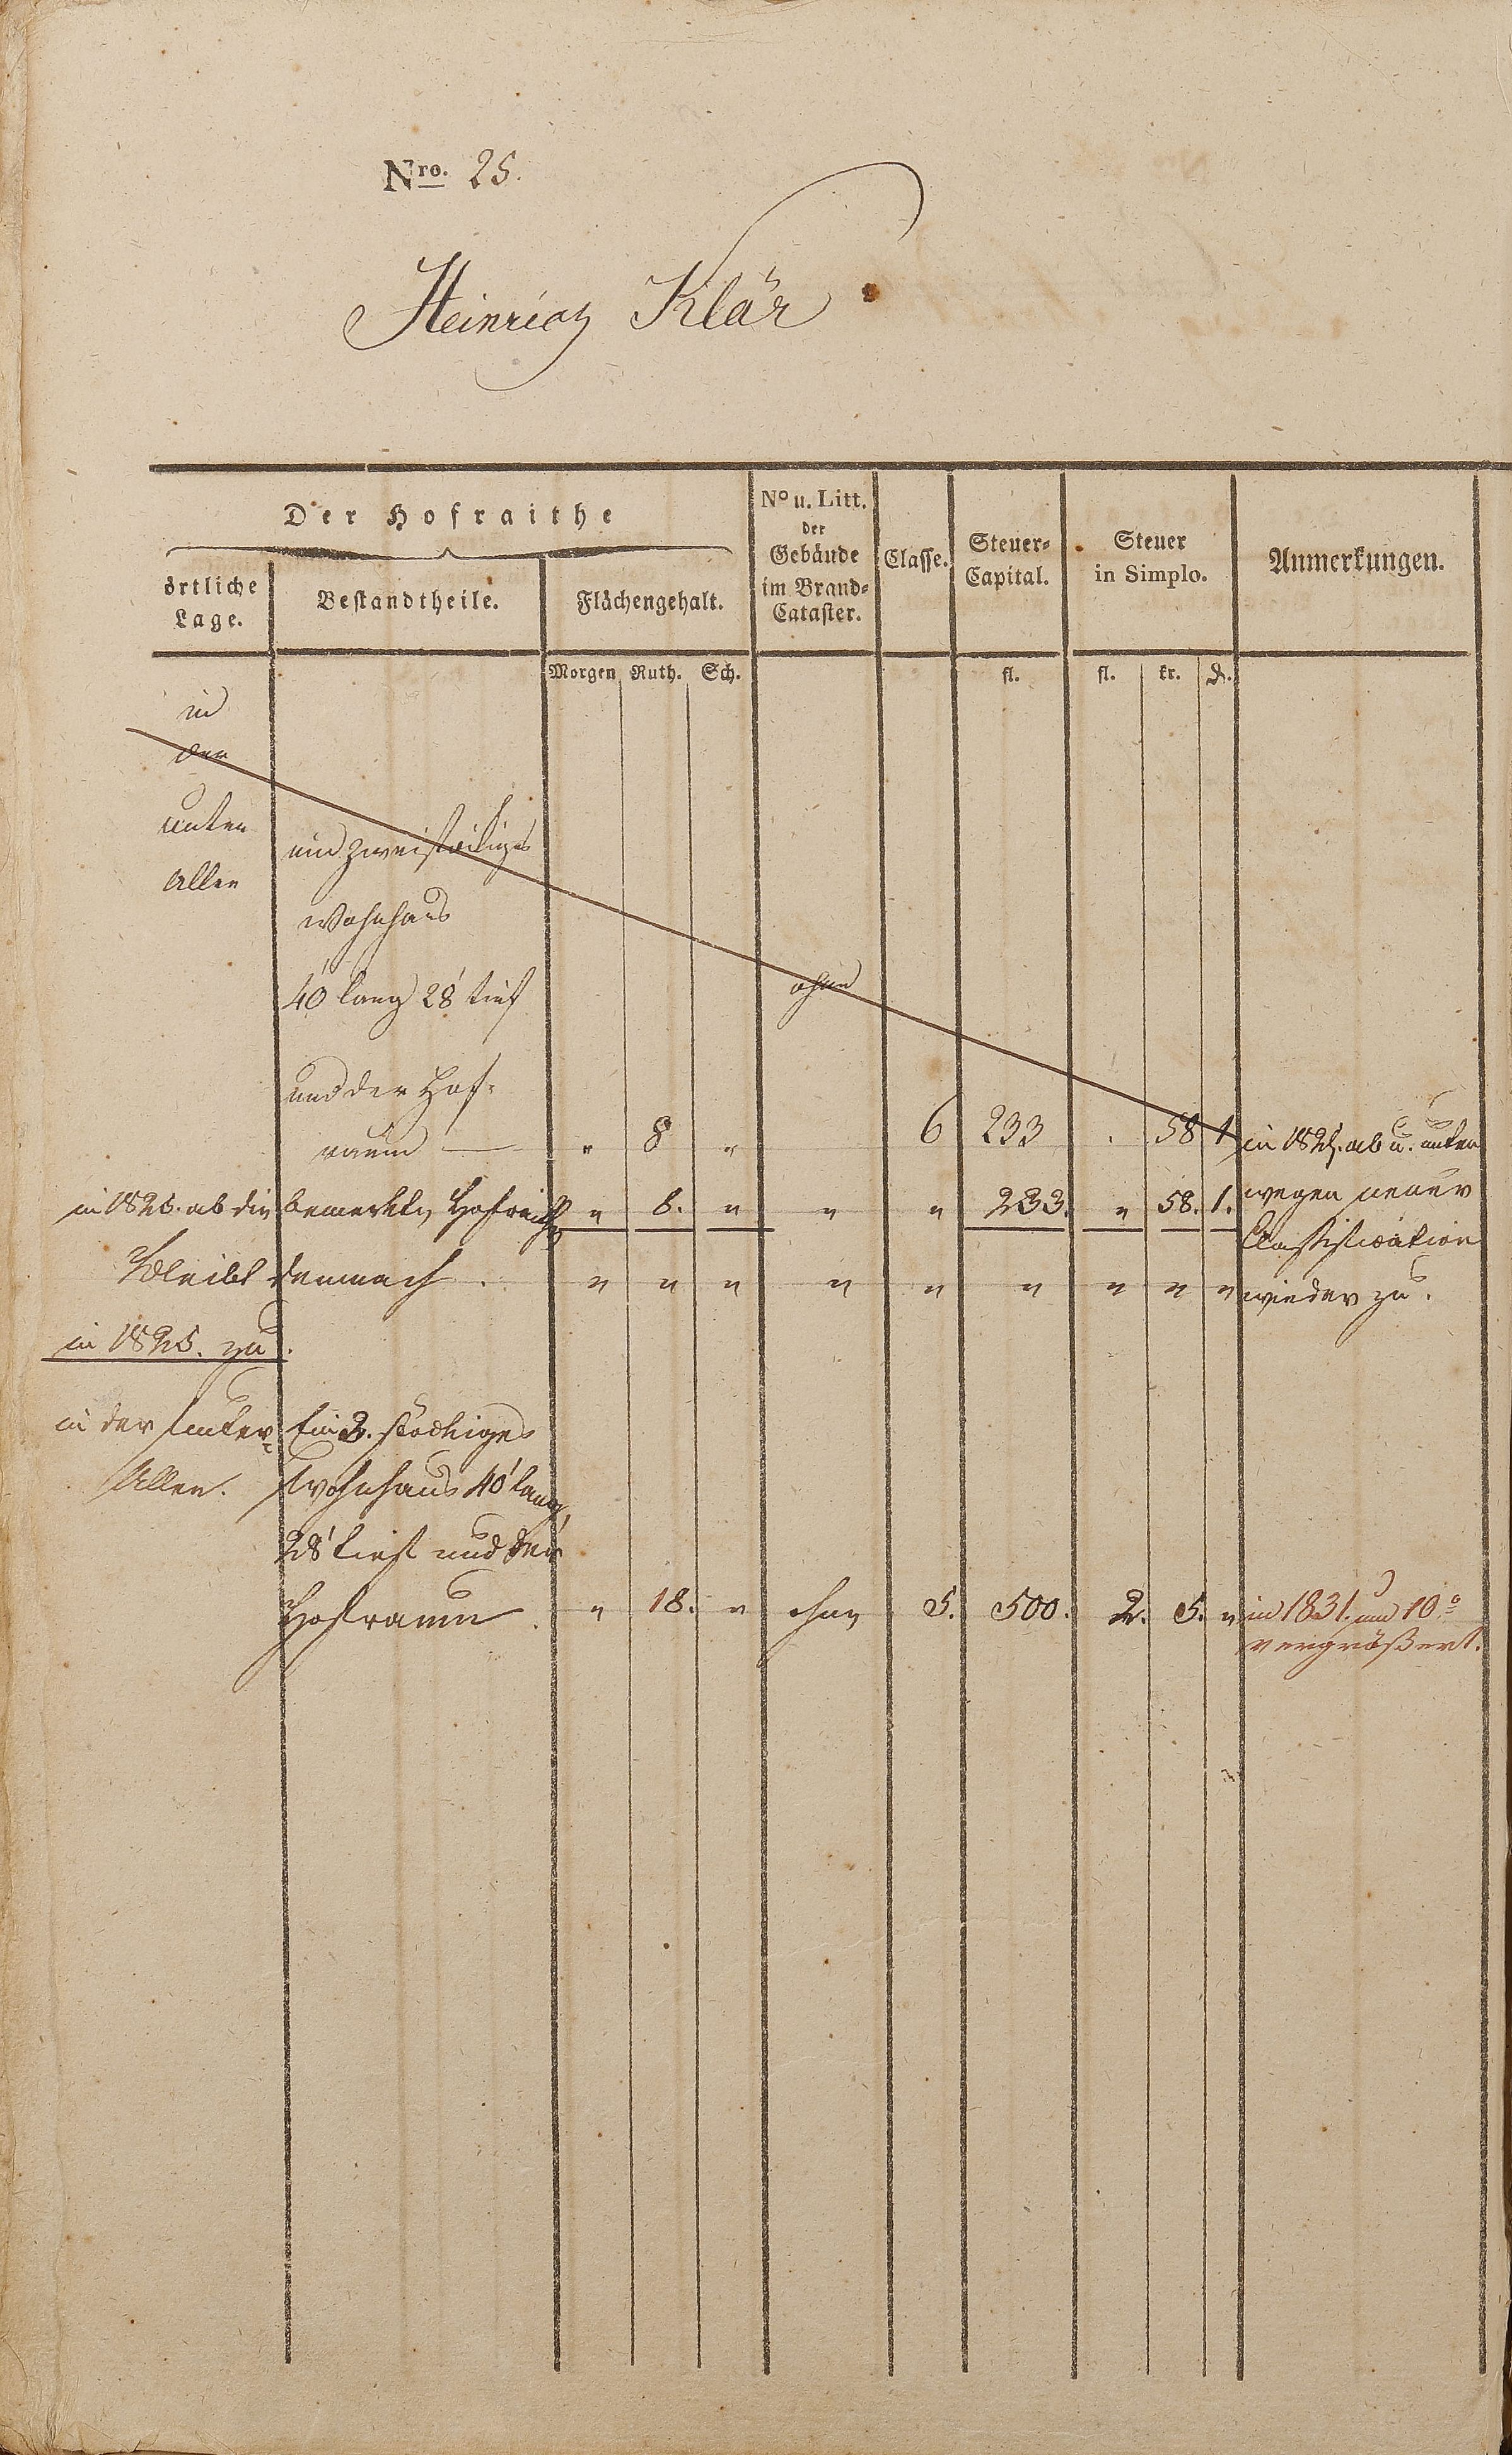 Nro. 25.
Heinrich Klär
Der Hofraithe
örtliche Lage.
Bestandtheile.
Flächengehalt.
No u. Litt. der Gebäude im Brand-Cataster.
Classe.
Steuer-Capital.
Steuer in Simplo.
Anmerkungen.
Morgen Ruth. Sch. fl. fl. kr. d.
in
der
unter
Allee
ein zweistöckiges
Wohnhaus
40' lang 28' tief ohne
und der Hof-
raum — " 8 " 6 233 . 58 1 in 1825. ab u. unten
in 1825. ab die bemerkte Hofraithe " 8. " " " 233. " 58. 1. wegen neuer
Classification
Bleibt demnach . " " " " " " " " " wieder zu.
in 1825. zu.
in der unter Ein 2. stöckiges
Allee. Wohnhaus 40' lang,
28' tief und der
Hofraum . " 18. " ohne 5. 500. 2. 5. " in 1831. um 10°
vergrößert.